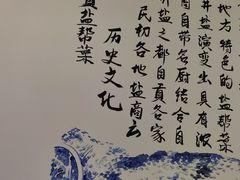 地方特色的盐帮菜
井盐演变出具有浓
自带名厨结合自
井盐之都自贡各家
民初各地盐商云
历史文化
盐帮菜